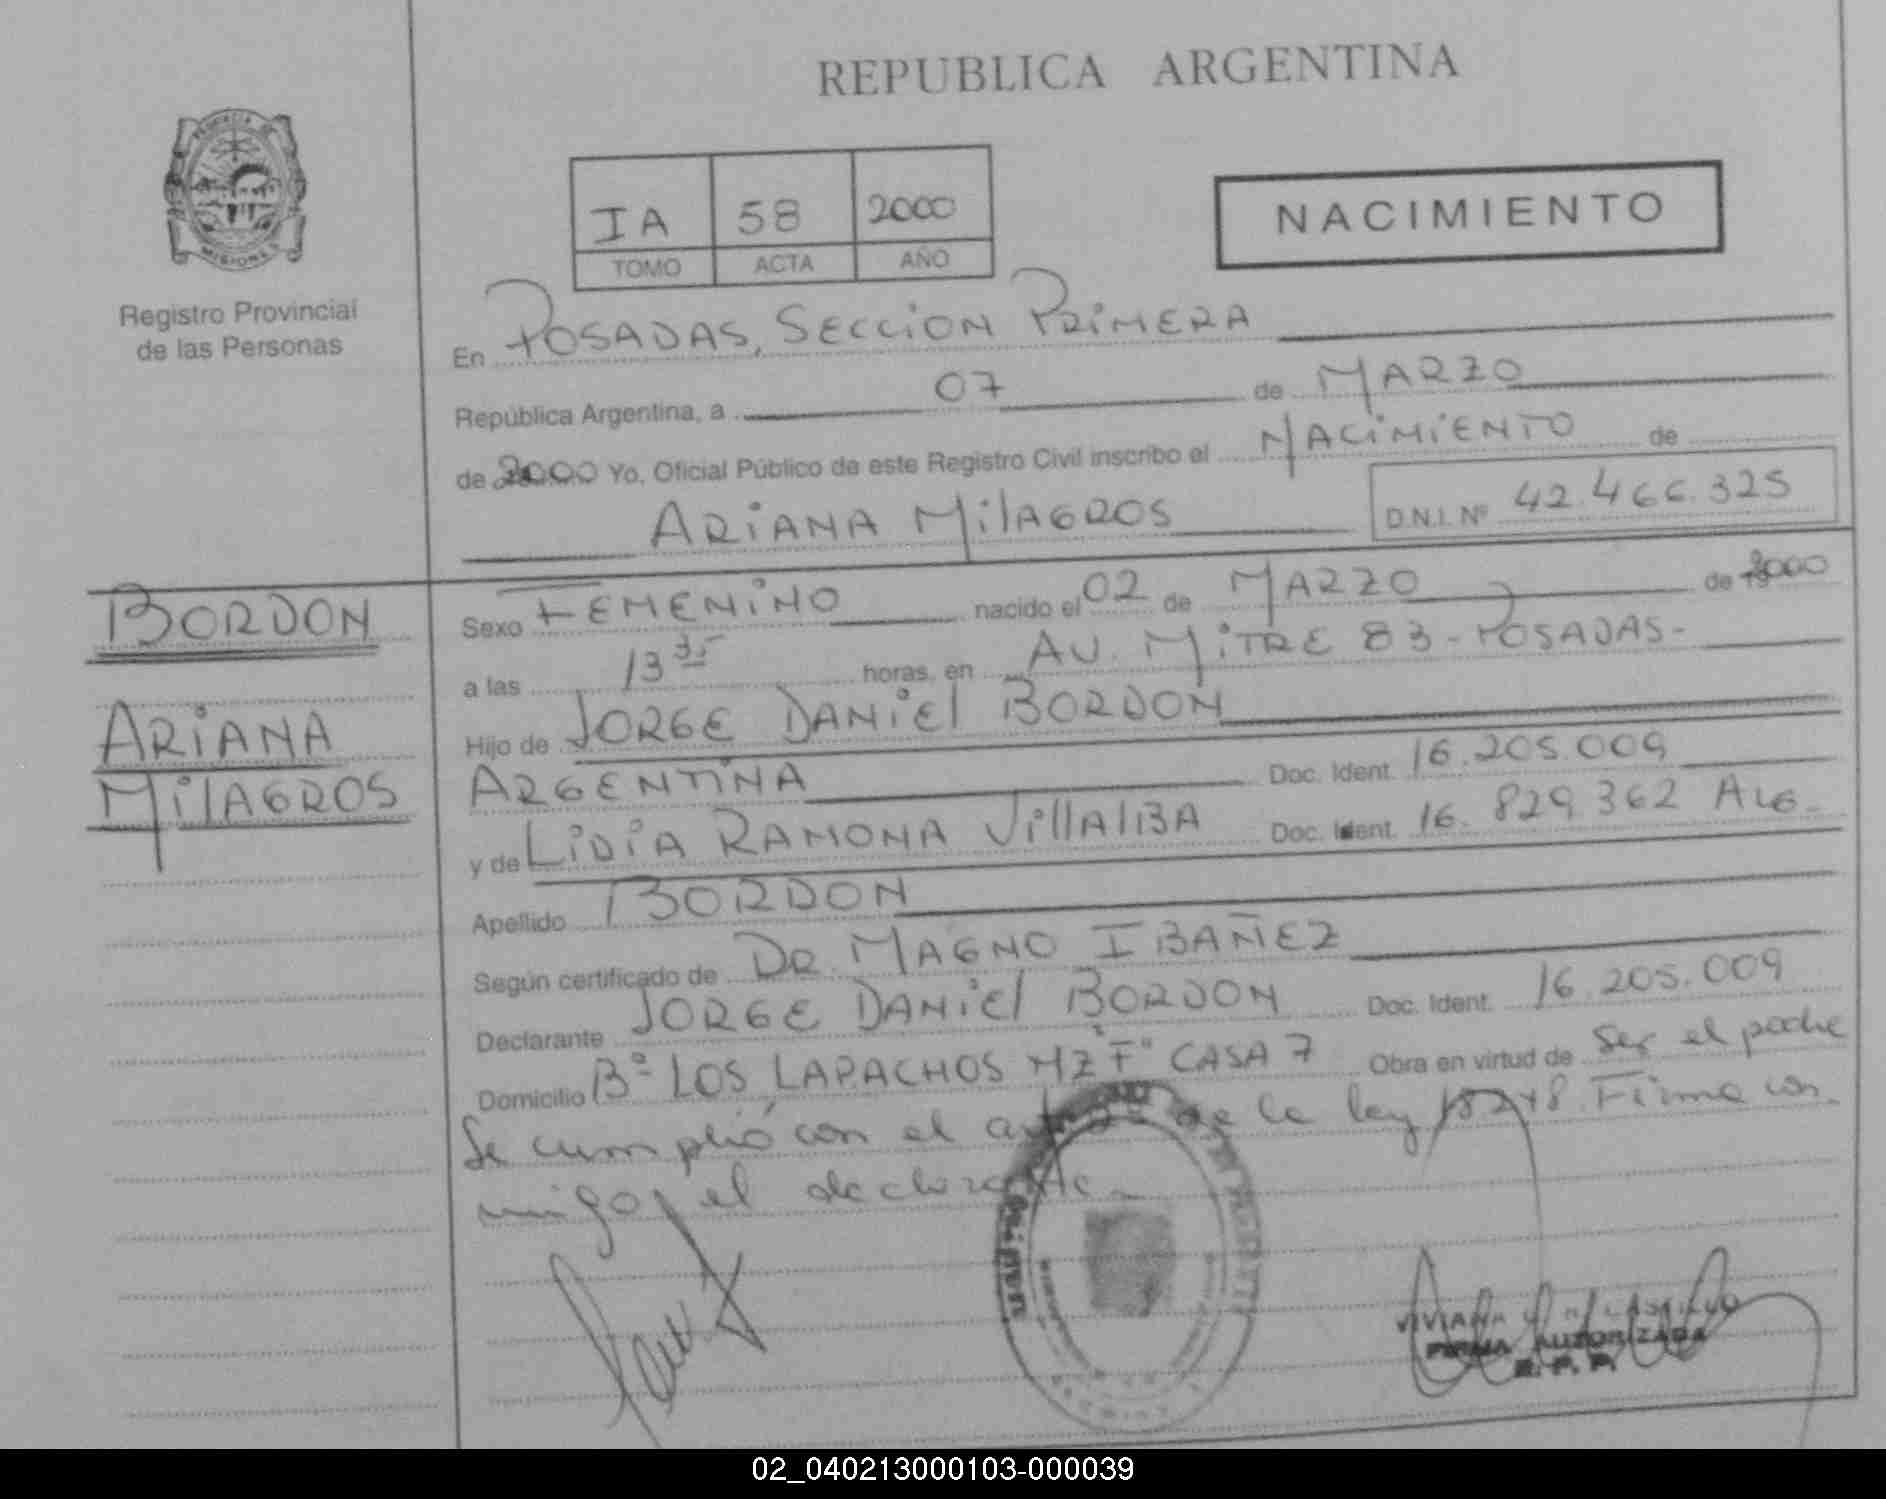 REPUBLICA ARGENTINA
PROVINCIA DE
MISIONES
Registro Provincial
de las Personas
IA 58 2000
TOMO ACTA AÑO
NACIMIENTO
En POSADAS, SECCION PRIMERA
República Argentina, a 07 de MARZO
de 2000 Yo, Oficial Público de este Registro Civil inscribo el NACIMIENTO de
ARIANA MILAGROS D.N.I. Nº 42.466.325
BORDON
ARIANA
MILAGROS
Sexo FEMENINO nacido el 02 de MARZO de 2000
a las 13 35 horas, en AV. MITRE 83 - POSADAS-
Hijo de JORGE DANIEL BORDON
ARGENTINA Doc. Ident. 16.205.009
y de LIDIA RAMONA VILLALBA Doc. Ident. 16.829.362 ARG.
Apellido BORDON
Según certificado de DR. MAGNO IBAÑEZ
Declarante JORGE DANIEL BORDON Doc. Ident. 16.205.009
Domicilio Bº LOS LAPACHOS MZ "F" CASA 7 Obra en virtud de Ser el padre
Se cumplió con el de la ley 18248. Firma con-
migo, el declarante-
VIVIANA
FIRMA AUTORIZADA
R.P.P.
02_040213000103-000039